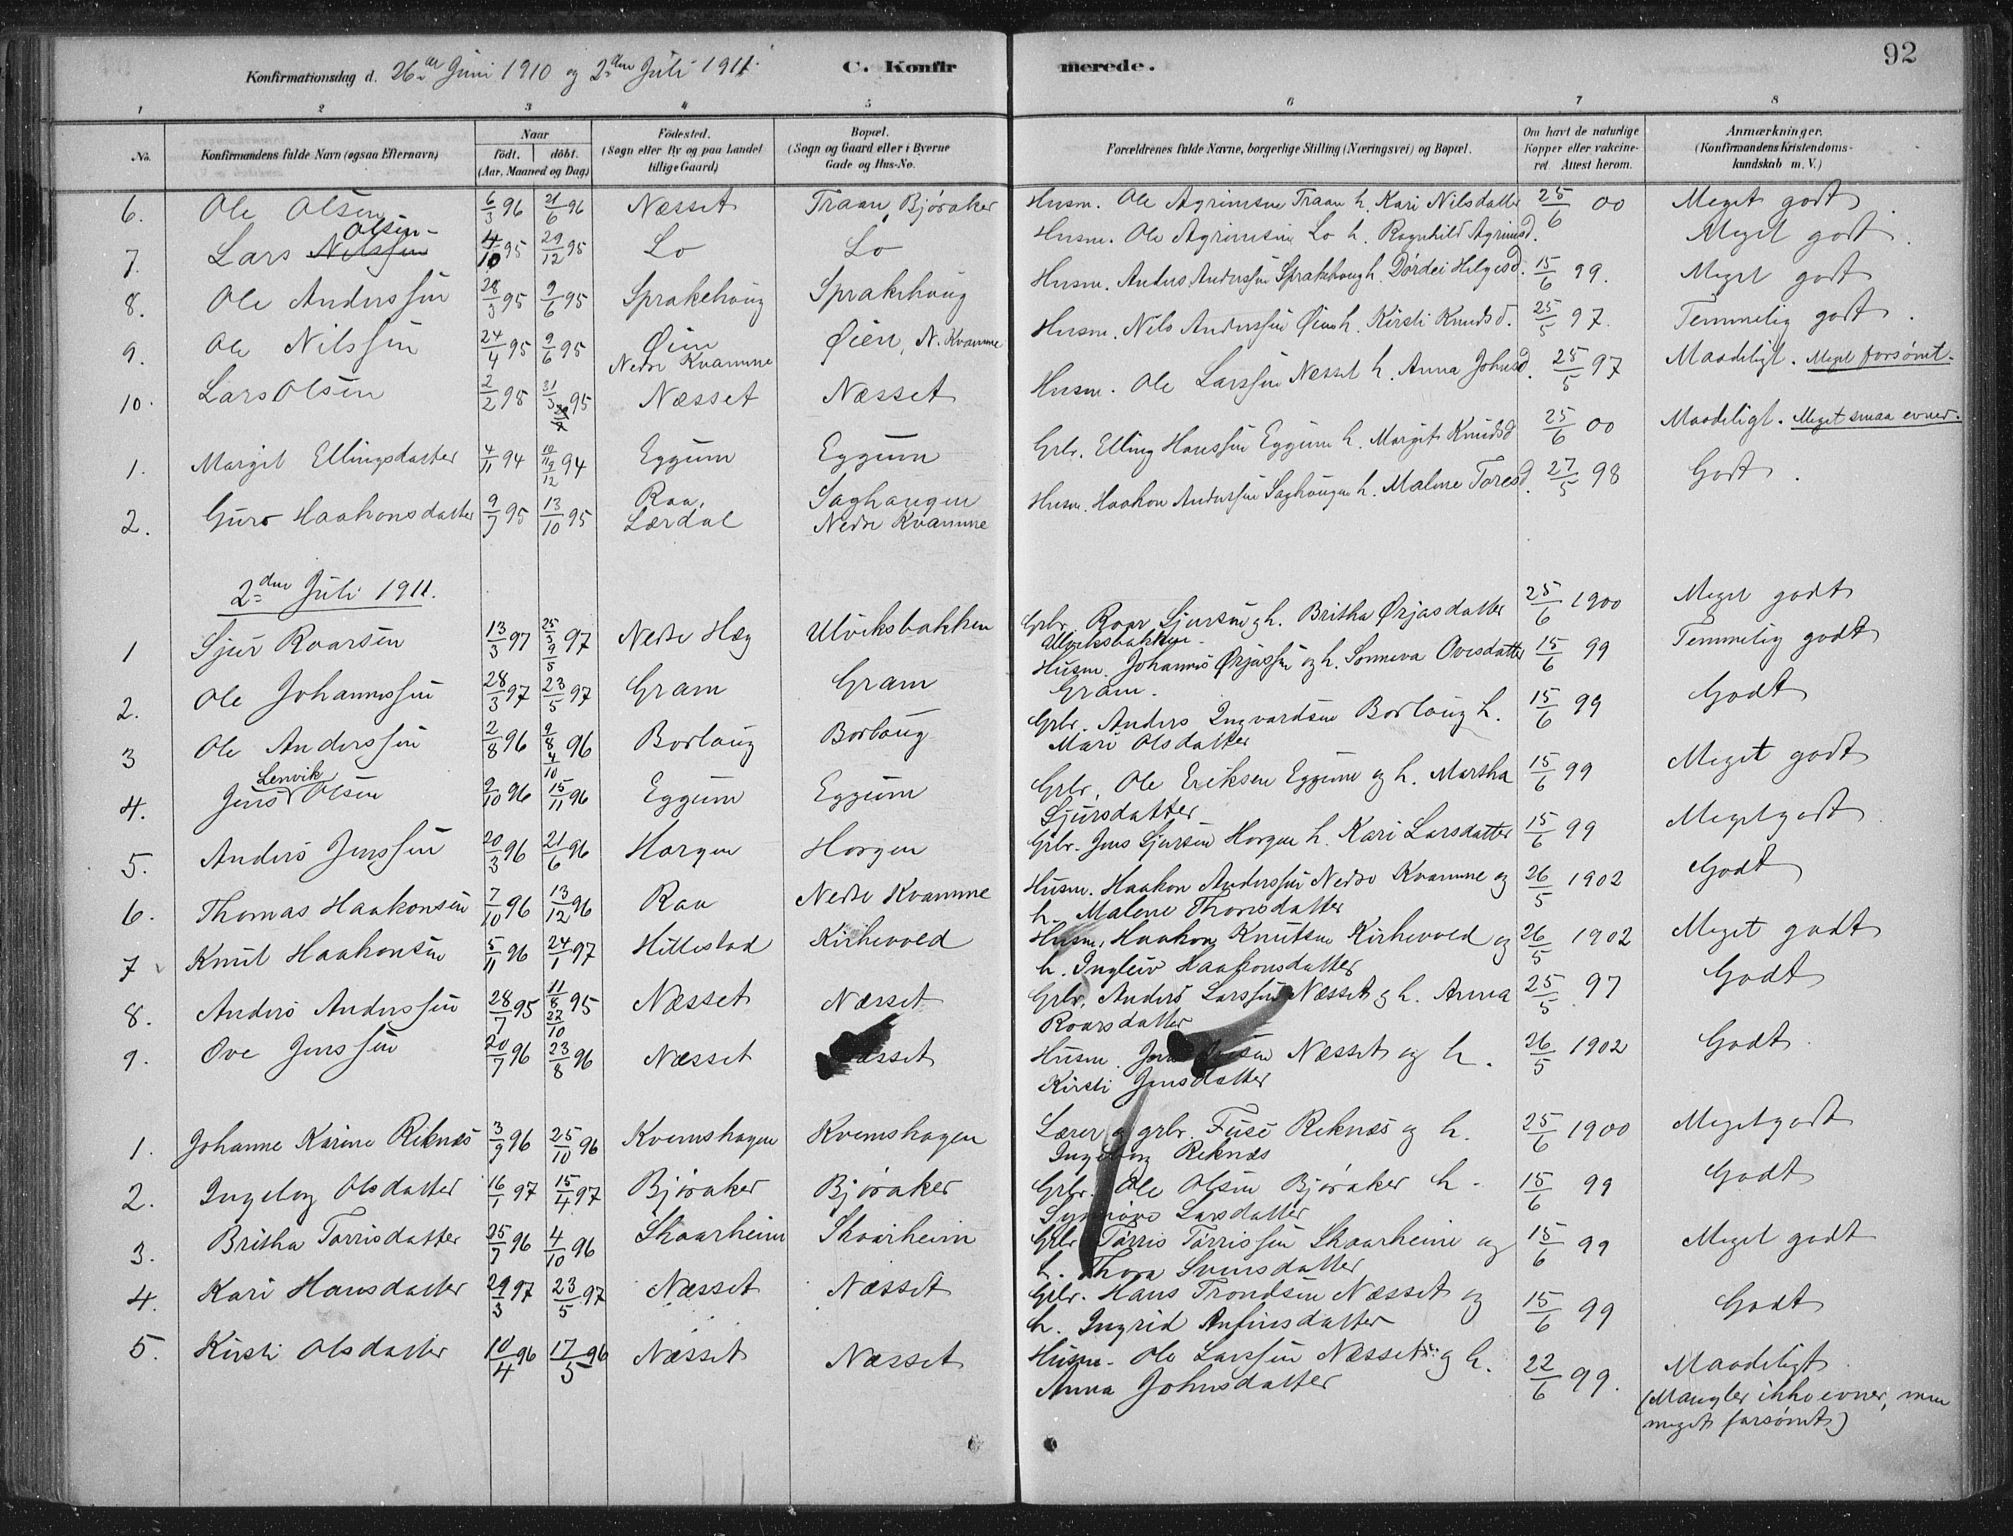 92
Konfirmationsdag d. 26de Juni 1910 og 2den Juli 1911. C. Konfirmerede.
1 2 3 4 5 6 7 8
No. Konfirmandens fulde Navn (ogsaa Efternavn) Naar født. døbt. (Aar, Maaned og Dag) Fødested. (Sogn eller By og paa Landet tillige Gaard) Bopæl. (Sogn og Gaard eller i Byerne Gade og Hus-No. Forældrenes fulde Navne, borgerlige Stilling (Næringsvei) og Bopæl. Om havt de naturlige Kopper eller vakcineret. Attest herom. Anmærkninger. (Konfirmandens Kristendomskundskab m. V.)
6. Ole Olsen 6/3 96 21/6 96 Næsset Traan, Bjøraker Husm. Ole Agrimsen Traan h. Kari Nilsdatter 25/6 00 Meget godt.
7. Lars Nilssen Olsen 4/10 95 29/12 95 Lo Lo Husm. Ole Agrimsen Lo h. Ragnhild Agrimsd. Meget godt.
8. Ole Anderssen 28/3 95 9/6 95 Sprakehaug Sprakehaug Husm. Anders Anderssen Sprakehaug h. Dordei Helgesd. 15/6 99. Meget godt
9. Ole Nilssen 24/4 95 9/6 95 Øien Nedre Kvamme Øien, N. Kvamme Husm. Nils Anderssen Øien h. Kirsti Knudsd. 25/5 97. Temmelig godt.
10. Lars Olsen 2/2 95 31/3 95 Næsset Næsset Husm. Ole Larssen Næsset h. Anna Johnsd. 25/5 97 Maadeligt. Meget forsømt.
1. Margit Ellingsdatter 4/11 94 10/11 9/12 94 Eggum Eggum Grbr. Elling Hanssen Eggum h. Margit Knudsd 25/6 00 Maadeligt. Meget smaa evner.
2. Guro Haakonsdatter 9/7 95 13/10 95 Raa, Lærdal Saghaugen Nedre Kvamme Husm. Haakon Anderssen Saghaugen h. Malene Toresd. 27/5 98 Godt.
2den Juli 1911.
1 Sjur Roarsen 13/3 97 25/3 9/5 97 Nedre Hæg Ulviksbakken Grbr. Roar Sjursen og h. Britha Ørjasdatter 25/6 1900 Meget godt
Ulviksbakken.
2. Ole Johannessen 28/3 97 23/5 97 Gram Gram Husm. Johannes Ørjassen og h. Sonneva Ovesdatter 15/6 99 Temmelig godt
Gram.
3 Ole Anderssen 2/8 96 9/8 4/10 96 Borlaug Borlaug Grbr. Anders Ingvardsen Borlaug h. 15/6 99 Godt
Mari Olsdatter
4. Jens Lenvik Olsen 9/10 96 15/11 96 Eggum Eggum Grbr. Ole Eriksen Eggum og h. Martha 15/6 99 Meget godt
Sjursdatter
5. Anders Jenssen 20/3 96 21/6 96 Horgen Horgen Grbr. Jens Sjursen Horgen h. Kari Larsdatter 15/6 99 Meget godt
6. Thomas Haakonsen 7/10 96 13/12 96 Raa Nedre Kvamme Husm. Haakon Anderssen Nedre Kvamme og 26/5 1902 Godt
h. Malene Thoresdatter
7 Knut Haakonsen 5/11 96 24/1 97 Hillestad Kirkevold Husm. Haakon Knutsen Kirkevold og 26/5 1902 Meget godt
h. Ingleiv Haakonsdatter
8. Anders Anderssen 28/7 95 11/8 22/10 95 Næsset Næsset Grbr. Anders Larssen Næsset og h. Anna 25/5 97 Godt
Roarsdatter
9. Ove Jenssen 20/7 96 23/8 96 Næsset Næsset Husm. Næsset og h. 26/5 1902 Godt.
Kirsti Jensdatter
1. Johanne Karine Reknes 3/9 96 25/10 96 Kvemshagen Kvemshagen Lærer og grbr. Fuse Reknes og h. 25/6 1900 Meget godt
Ingeborg Reknes
2. Ingeborg Olsdatter 16/1 97 15/4 97 Bjøraker Bjøraker Grbr. Ole Olsen Bjøraker h. 15/6 99 Godt
Synnøve Larsdatter
3. Britha Torrisdatter 25/7 96 4/10 96 Skaarheim Skaarheim Grbr. Torris Torrissen Skaarheim og 15/6 99 Meget godt
h. Thora Svensdatter
4. Kari Hansdatter 29/3 97 23/5 97 Næsset Næsset Grbr. Hans Trondsen Næsset og 15/6 99 Godt
h. Ingrid Anfinsdatter
5. Kirsti Olsdatter 10/4 96 17/5 96 Næsset Næsset Husm. Ole Larssen Næsset og h. 22/6 99. Maadeligt.
Anna Johnsdatter (Mangler ikke evner, men
meget forsømt)